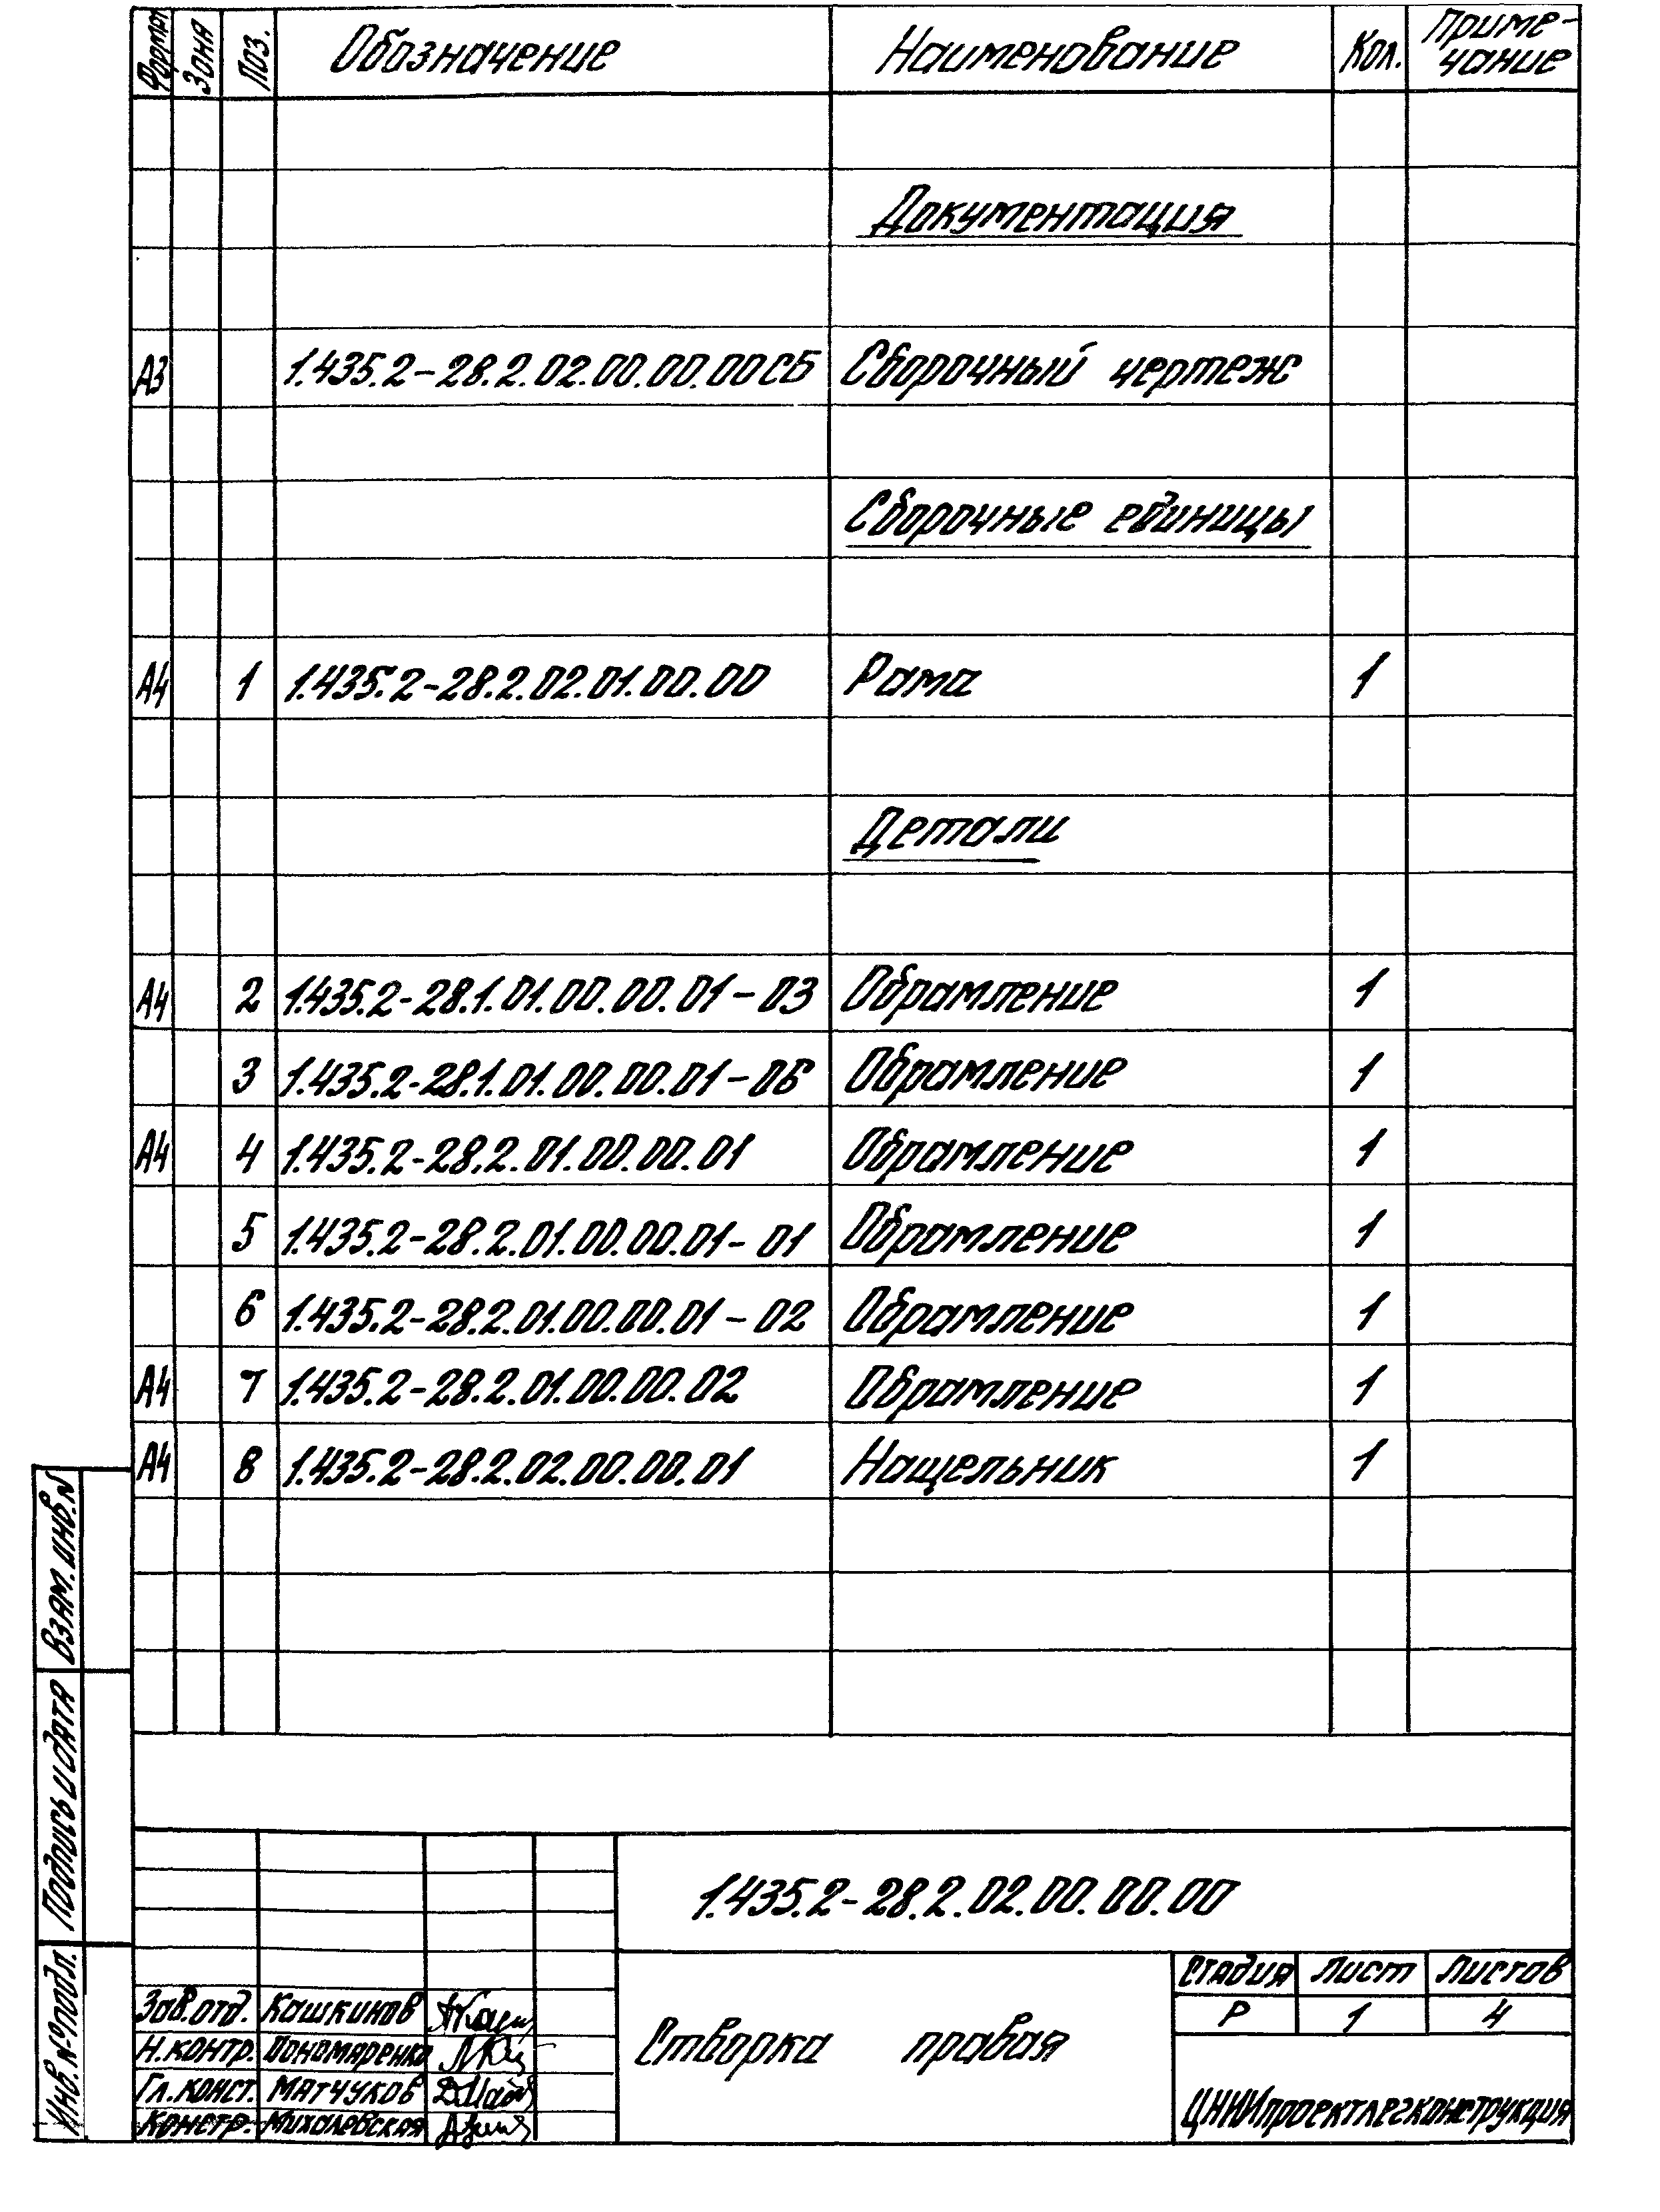 Формат Зона Поз. Обозначение Наименование Кол. Приме-
чание
Документация
А3 1.435.2-28.2.02.00.00.00СБ Сборочный чертеж
Сборочные единицы
А4 1 1.435.2-28.2.02.01.00.00 Рама 1
Детали
А4 2 1.435.2-28.1.01.00.00.01-03 Обрамление 1
3 1.435.2-28.1.01.00.00.01-06 Обрамление 1
А4 4 1.435.2-28.2.01.00.00.01 Обрамление 1
5 1.435.2-28.2.01.00.00.01-01 Обрамление 1
6 1.435.2-28.2.01.00.00.01-02 Обрамление 1
А4 7 1.435.2-28.2.01.00.00.02 Обрамление 1
А4 8 1.435.2-28.2.02.00.00.01 Нащельник 1
Взам. инв. N
Подпись и дата
Инв. № подл.
1.435.2-28.2.02.00.00.00
Зав. отд. Кашкинов
Н. контр. Пономаренко
Гл. конст. Матчуков
Констр. Михалевская
Створка правая
Стадия Лист Листов
Р 1 4
ЦНИИпроектлегконструкция